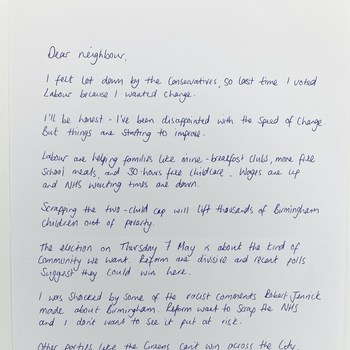 Dear neighbour,
I felt let down by the Conservatives, so last time I voted
Labour because I wanted change.
I'll be honest - I've been disappointed with the speed of change.
But things are starting to improve.
Labour are helping families like mine - breakfast clubs, more free
school meals, and 30-hours free childcare. Wages are up
and NHS waiting times are down.
Scrapping the two-child cap will lift thousands of Birmingham
children out of poverty.
The election on Thursday 7 May is about the kind of
community we want. Reform are divisive and recent polls
suggest they could win here.
I was shocked by some of the racist comments Robert Jenrick
made about Birmingham. Reform want to scrap the NHS
and I don't want to see it put at risk.
Other parties like the Greens can't win across the city.